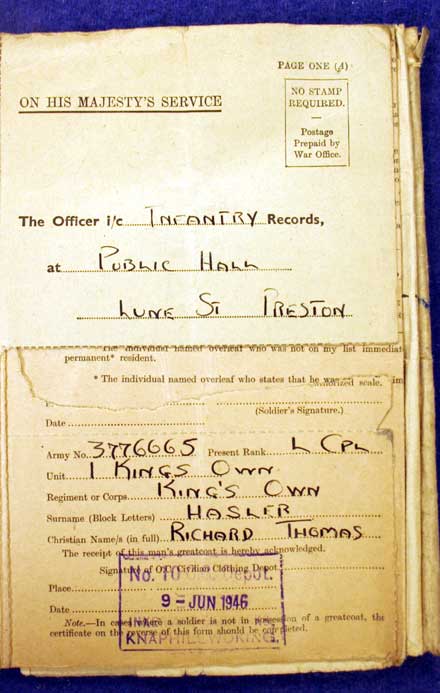 PAGE ONE (A)
ON HIS MAJESTY'S SERVICE
NO STAMP
REQUIRED.
—
Postage
Prepaid by
War Office.
The Officer i/c INFANTRY Records,
at PUBLIC HALL
LUNE ST PRESTON
The individual named overleaf who was not on my list immediat
permanent* resident.
* The individual named overleaf who states that he was im
authorized scale.
(Soldier's Signature.)
Date
Army No. 3776665 Present Rank L CPL
Unit 1 KINGS OWN
Regiment or Corps KING'S OWN
Surname (Block Letters) HASLER
Christian Name/s (in full) RICHARD THOMAS
The receipt of this man's greatcoat is hereby acknowledged.
Signature of O.C. Civilian Clothing Depot
Place
Date
No. 10 Depot.
9 - JUN 1946
KNAPHILL WOKING.
Note.—In cases where a soldier is not in possession of a greatcoat, the
certificate on the reverse of this form should be completed.